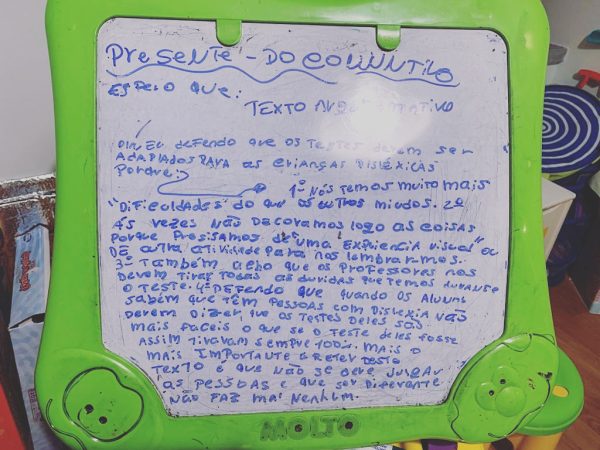 PRESENTE - DO CONJUNTIVO
ESPERO QUE:
TEXTO ARGUMENTATIVO
EU defendo que os testes devem ser
ADAPTADOS PARA as crianças DISLÉXICAS
Porque:
1º Nós temos muito mais
"Dificuldades do que os outros miudos. 2º
ÀS vezes NÃO Decoramos logo as coisas
porque Presisamos de uma expriencia visual" ou
DE outra atividade para nos lembrarmos.
3º Também acho que os professores nos
devem tirar todas as duvidas que temos durante
o teste. 4º Defendo que quando os Alunos
sabem que têm pessoas com dislexia não
devem Dizer que os testes deles são
mais faceis o que se o teste deles fosse
Assim tiravam sempre 100%. Mais o
mais importante a reter deste
texto é que não se deve julgar
as pessoas e que ser diferente
não faz mal nenhum.
MOLTO